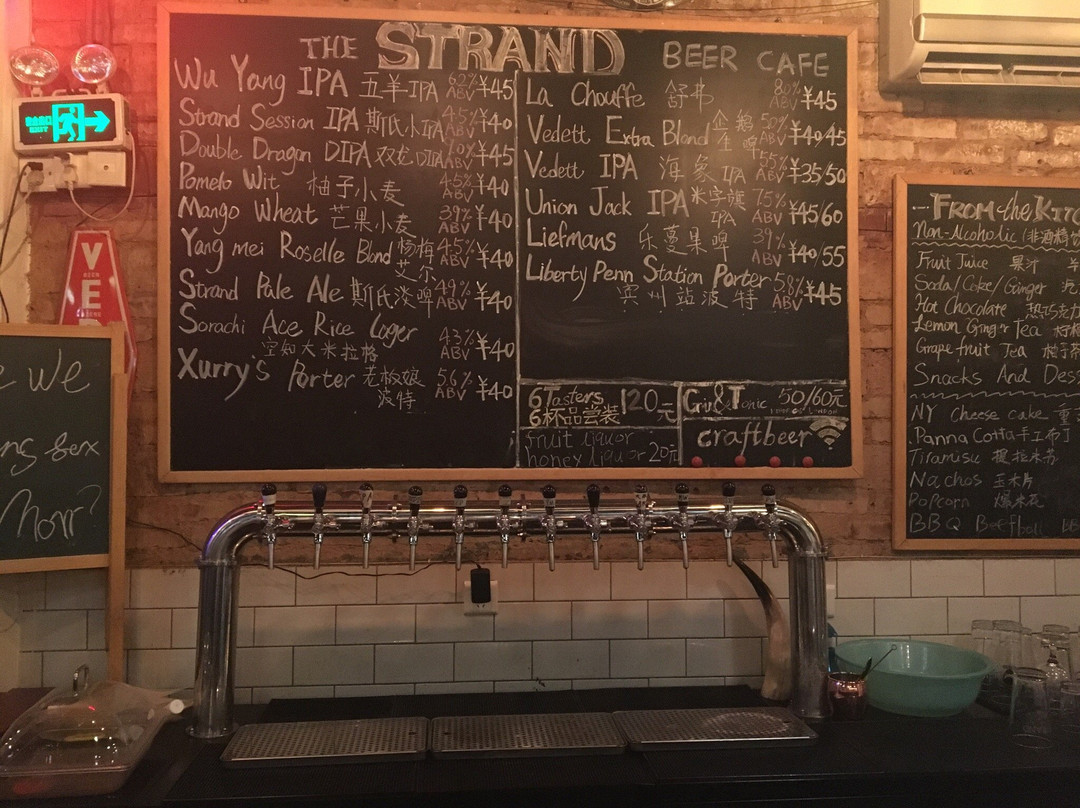 THE STRAND BEER CAFE
Wu Yang IPA 五羊IPA 6.2% ABV ¥45
Strand Session IPA 斯氏小IPA 4.5% ABV ¥40
Double Dragon DIPA 双龙DIPA ABV ¥45
Pomelo Wit 柚子小麦 4.5% ABV ¥40
Mango Wheat 芒果小麦 3.9% ABV ¥40
Yang mei Roselle Blond 杨梅艾尔 4.5% ABV ¥40
Strand Pale Ale 斯氏淡啤 4.9% ABV ¥40
Sorachi Ace Rice Lager
空知大米拉格 4.3% ABV ¥40
Xurry's Porter 老板娘
波特 5.6% ABV ¥40
La Chouffe 舒弗 8.0% ABV ¥45
Vedett Extra Blond 企鹅 5.0% ABV ¥40/45
Vedett IPA 海象IPA 5.5% ABV ¥35/50
Union Jack IPA 米字旗IPA 7.5% ABV ¥45/60
Liefmans 乐蔓果啤 3.9% ABV ¥40/55
Liberty Penn Station Porter
宾州站波特 5.8% ABV ¥45
6 Tasters
6杯品尝装 120元
Gin & Tonic 50/60元
fruit liquor
honey liquor 20元
craftbeer
EXIT
VE
e we
ng
FROM the KITC
Non-Alcoholic (非酒精饮
Fruit Juice 果汁
Soda/Coke/Ginger
Hot Chocolate 热巧克力
Lemon Ginger Tea 柠檬
Grapefruit Tea 柚子茶
Snacks And Dess
NY cheese cake 重
Panna Cotta 手工布丁
Tiramisu 提拉米苏
Nachos 玉米片
Popcorn 爆米花
BBQ